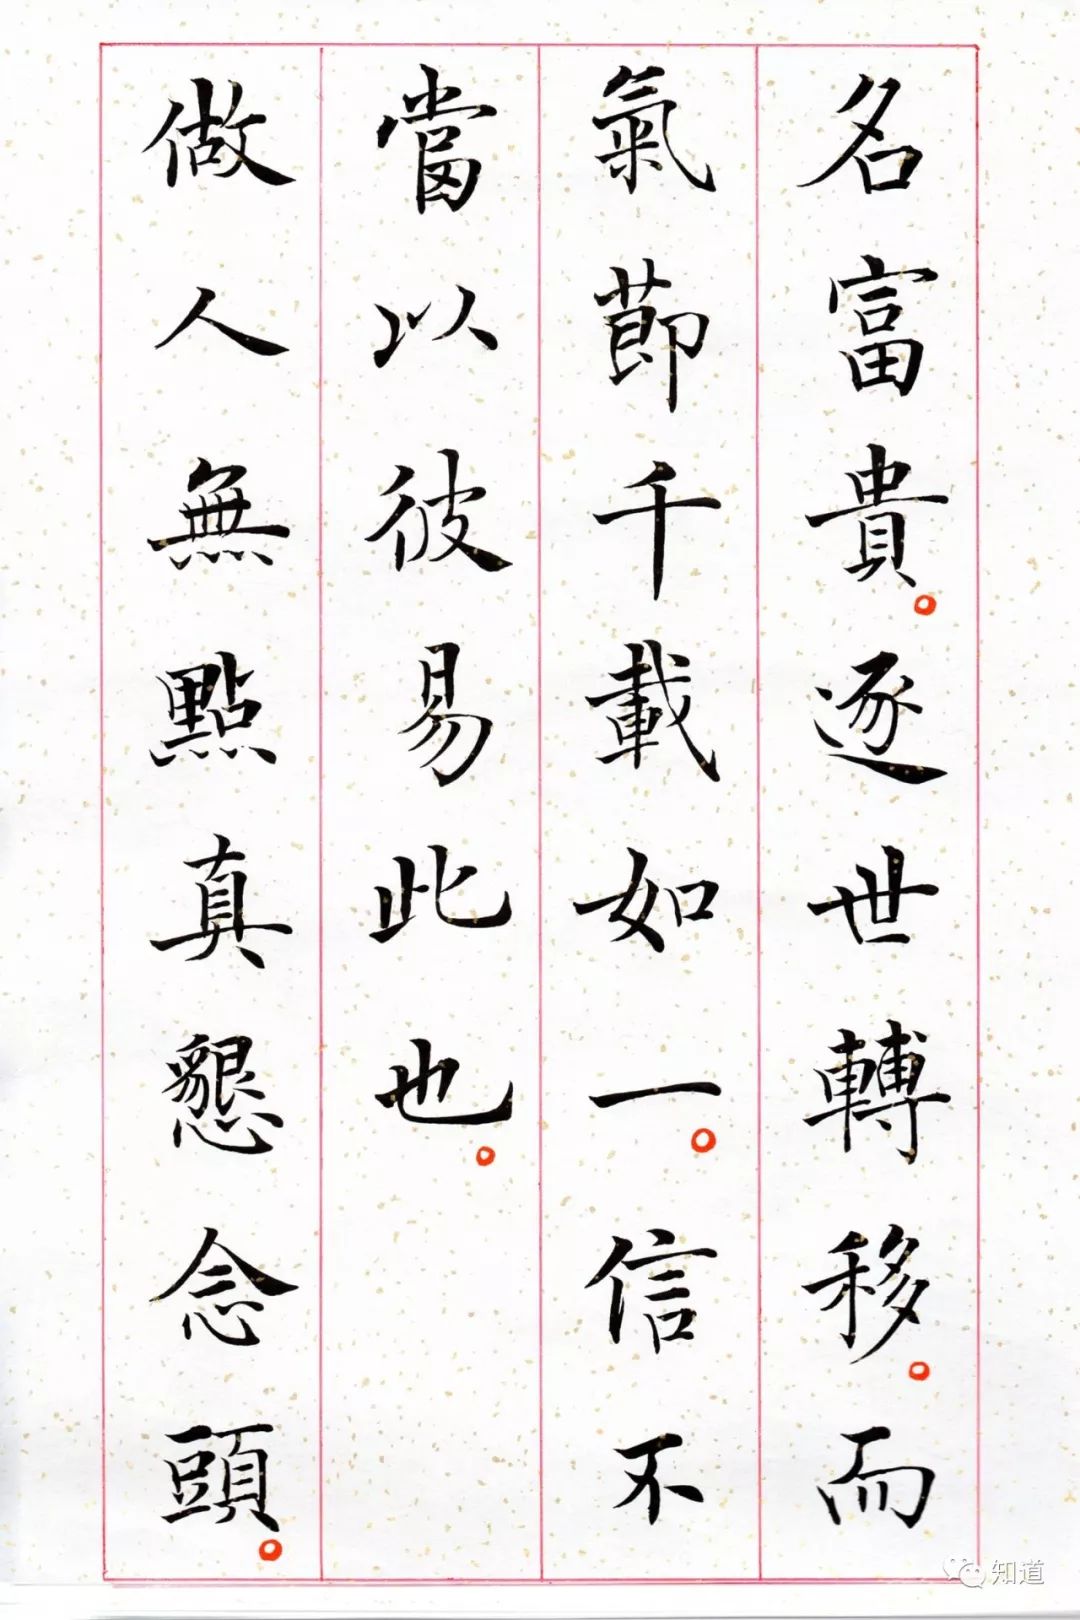 名富貴。逐世轉移。而
氣節千載如一。信不
當以彼易此也。
做人無點真懇念頭。
知道